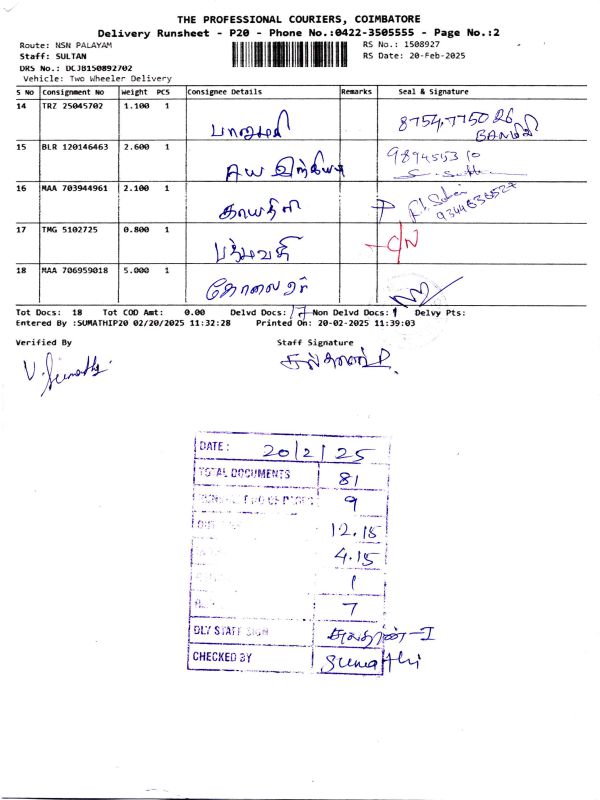 THE PROFESSIONAL COURIERS, COIMBATORE
Delivery Runsheet - P20 - Phone No.:0422-3505555 - Page No.:2
Route: NSN PALAYAM RS No.: 1508927
Staff: SULTAN RS Date: 20-Feb-2025
DRS No.: DCJB150892702
Vehicle: Two Wheeler Delivery
S No Consignment No Weight PCS Consignee Details Remarks Seal & Signature
14 TRZ 25045702 1.100 1 பானுமதி
15 BLR 120146463 2.600 1
16 MAA 703944961 2.100 1 காயத்ரி
17 TMG 5102725 0.800 1 பத்மாவதி C/N
18 MAA 706959018 5.000 1
Tot Docs: 18 Tot COD Amt: 0.00 Delvd Docs: 17 Non Delvd Docs: 1 Delvy Pts:
Entered By :SUMATHIP20 02/20/2025 11:32:28 Printed On: 20-02-2025 11:39:03
Verified By Staff Signature
V. Sumathi
DATE : 20/2/25
TOTAL DOCUMENTS 81
9
12.15
4.15
1
7
DLY STAFF SIGN சுல்தான் - I
CHECKED BY Sumathi